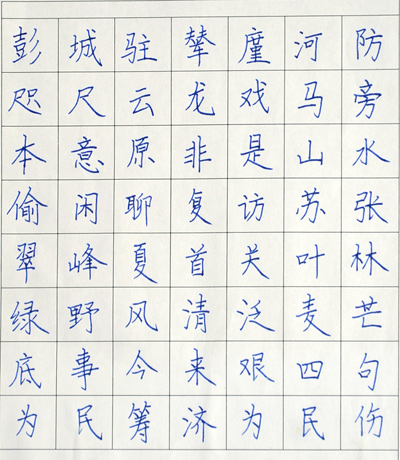 彭城驻辇廑河防
咫尺云龙戏马旁
本意原非是山水
偷闲聊复访苏张
翠峰夏首关叶林
绿野风清泛麦芒
底事今来艰四句
为民筹济为民伤